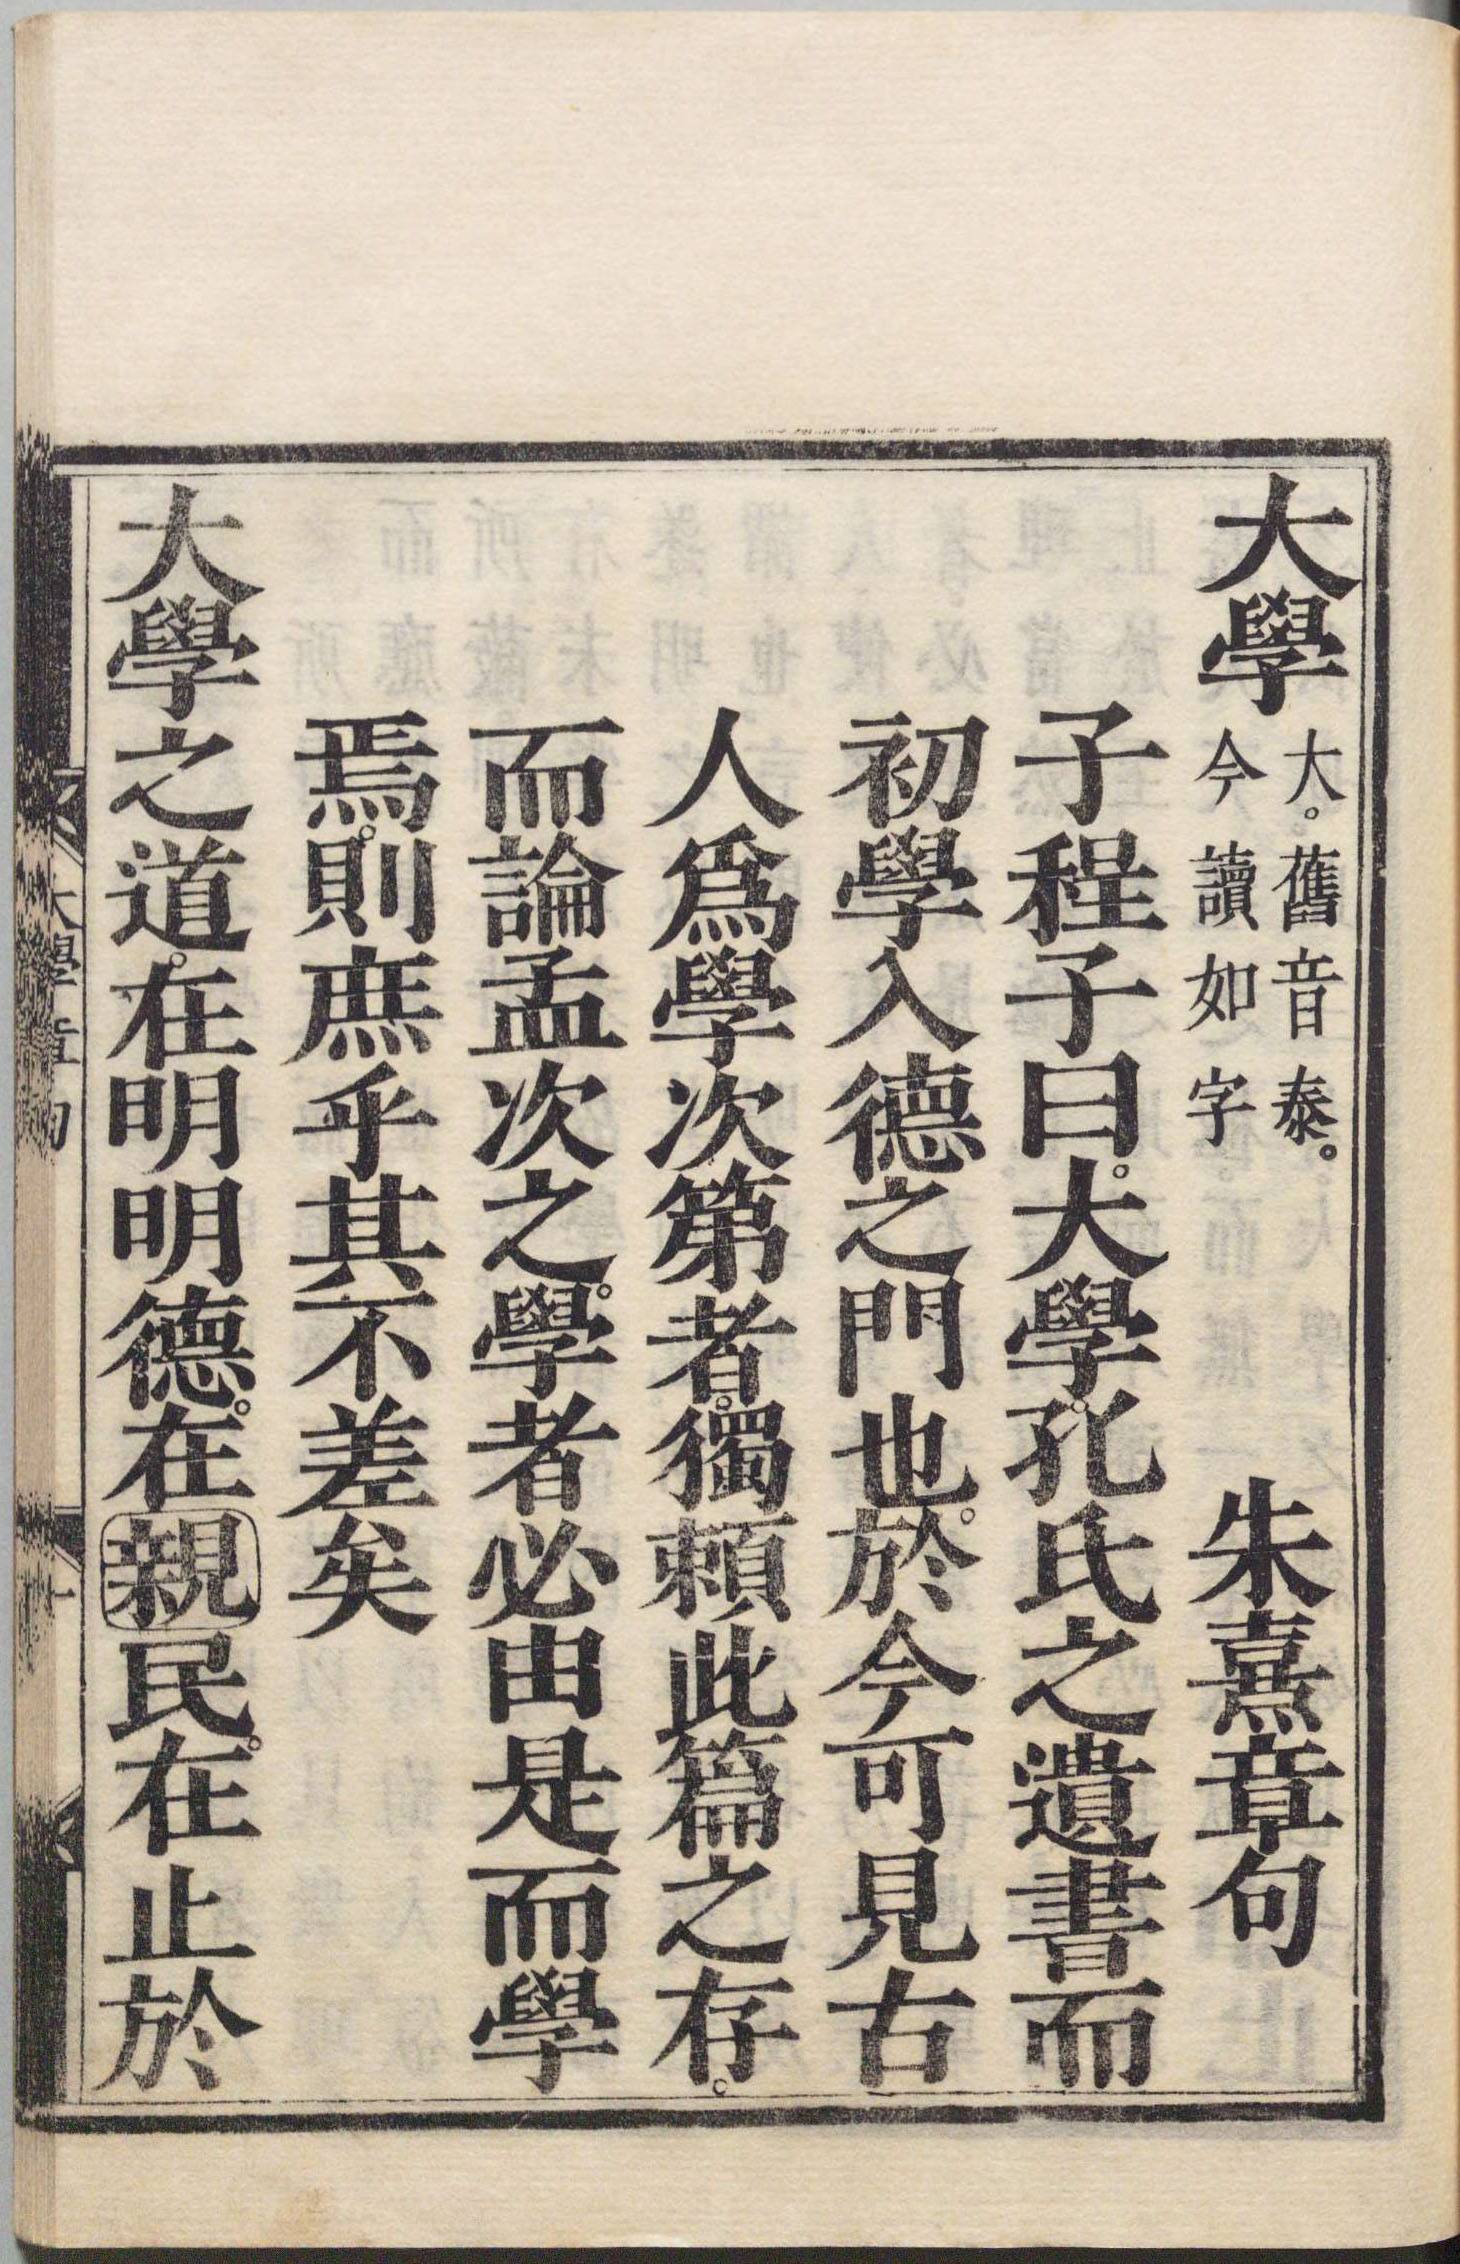 大學大。舊音泰。今讀如字　朱熹章句
子程子曰。大學。孔氏之遺書而
初學入德之門也。於今可見古
人爲學次第者。獨頼此篇之存。
而論孟次之。學者必由是而學
焉。則庶乎其不差矣
大學之道。在明明德。在親民。在止於
大學章句
一